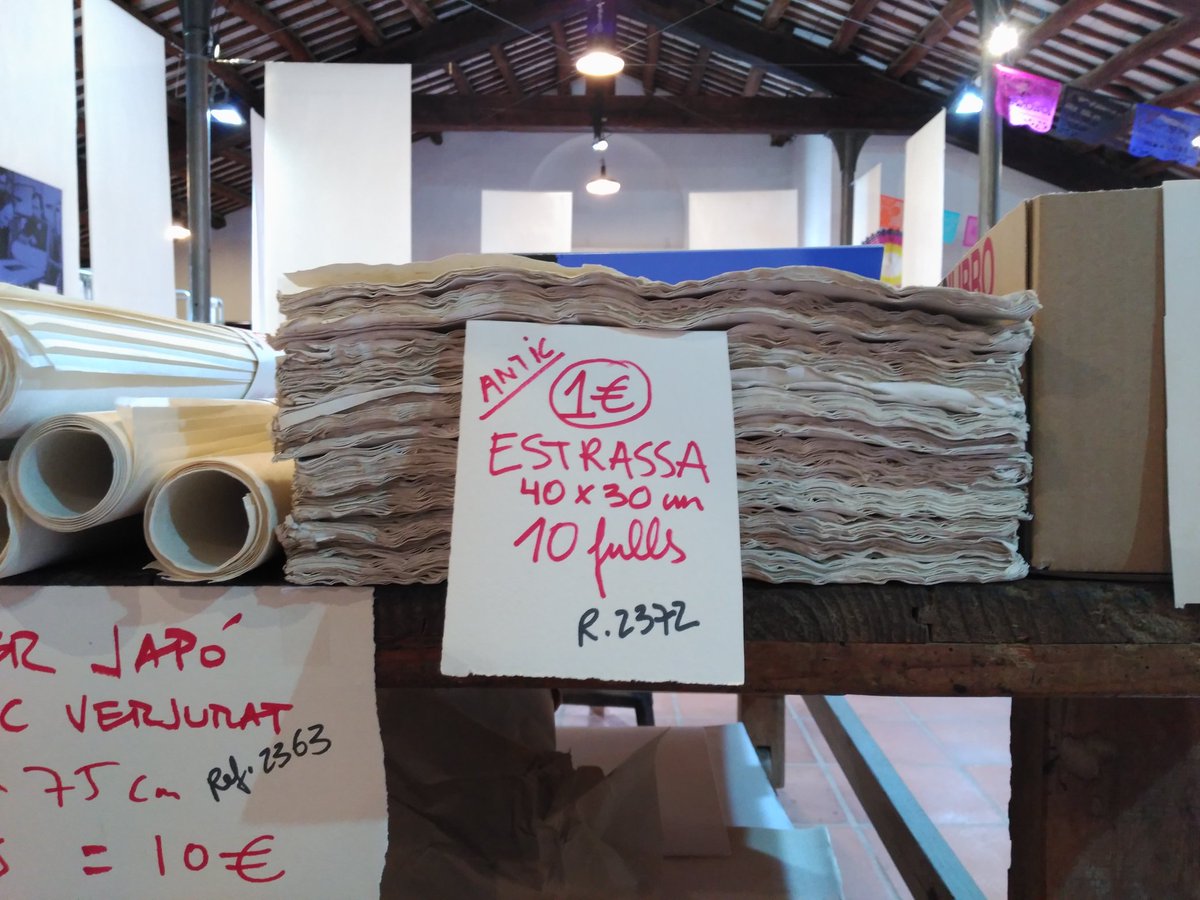 ANTIC
1€
ESTRASSA
40 x 30 cm
10 fulls
R. 2372
JAPÓ
VERJURAT
75 cm
Ref. 2363
= 10€